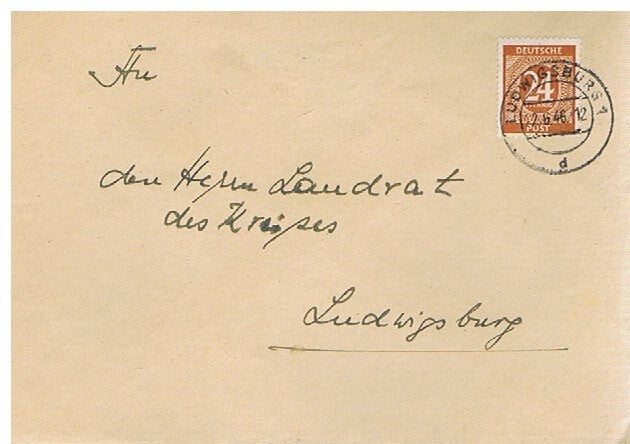 An
DEUTSCHE
24
POST
LUDWIGSBURG 1
.6.46. 12
d
den Herrn Landrat
des Kreises
Ludwigsburg